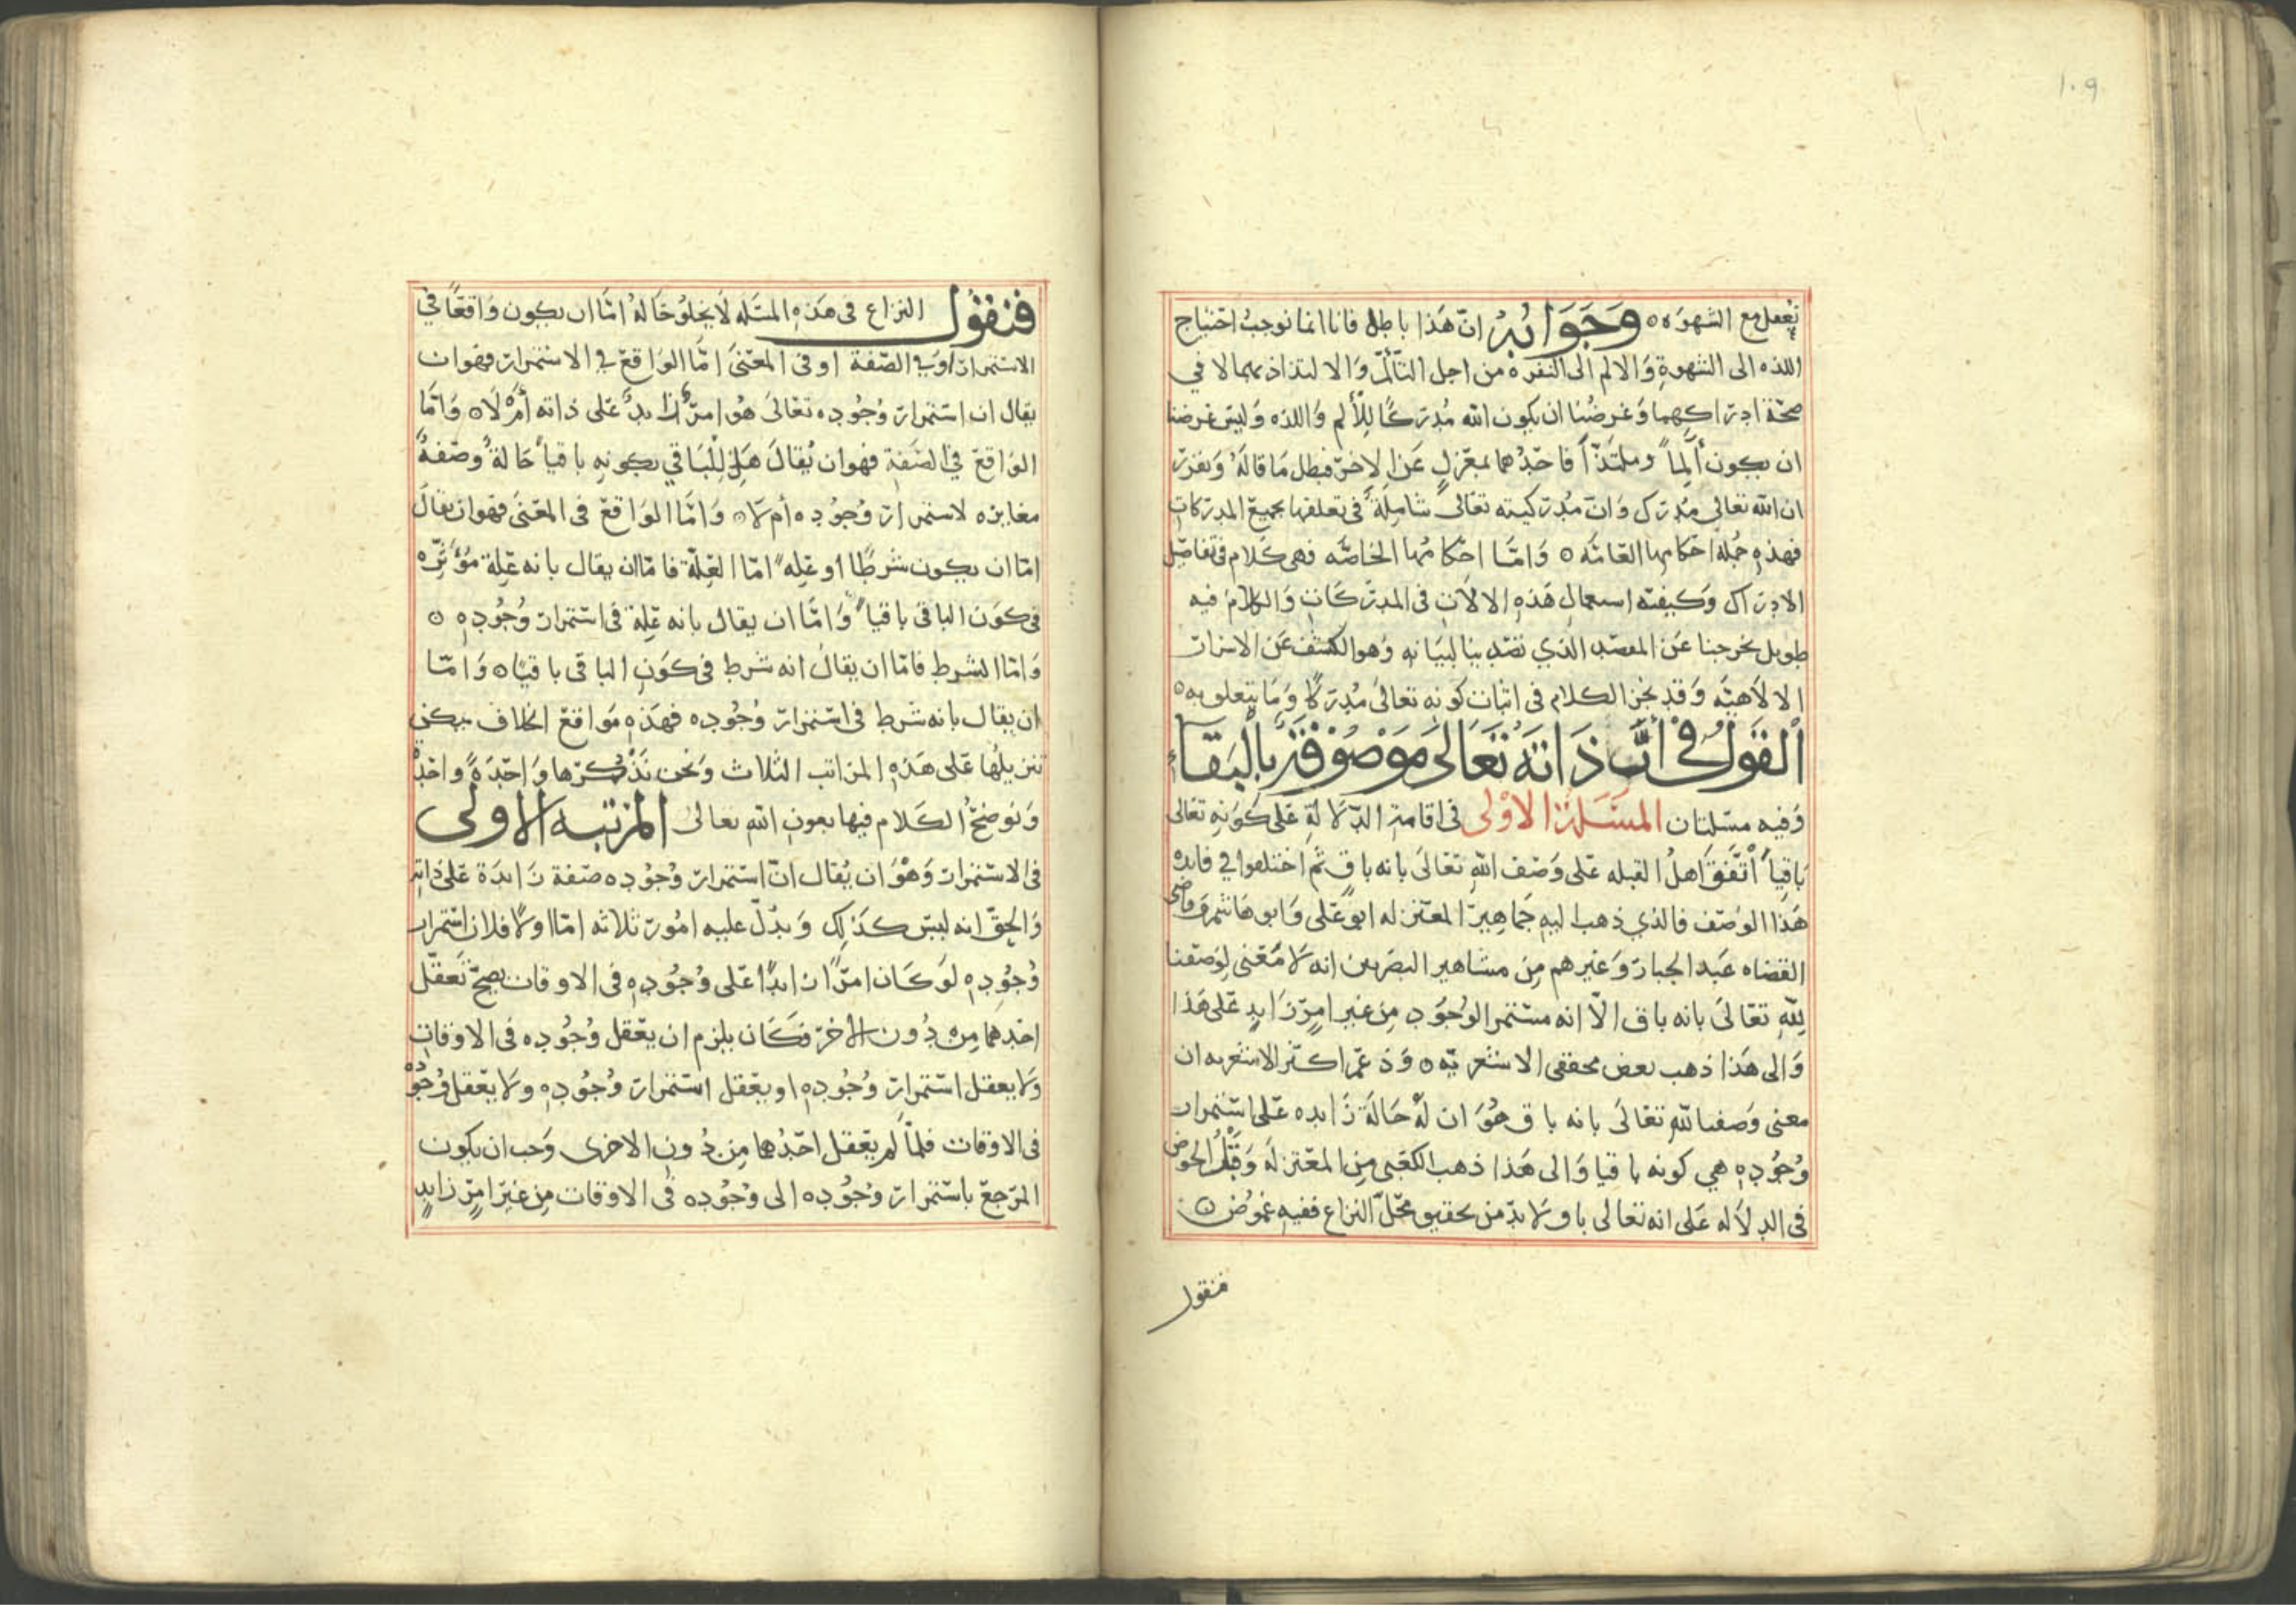 ١٠٩
تعقل مع الشهوه ٥ وَجَوَابُهُ انّ هَذا باطل فانا انما نوجبُ احتياج
اللذه الى الشهوةِ وَالالم الى النفره من اجل التألّم وَالالتذاذ بهما لا في
صحّة ادراكهما وَغرضُنا ان يكون الله مُدركًا لِلألم وَاللذه وَليس غرضنا
ان يكون ألِماً وملتَذّاً فاحَدُهما بمعزلٍ عَن الاخر فبطل مَا قالهُ وَتقرر
ان الله تعالى مُدرك وَانّ مُدركيته تعَالى شامِلةٌ في تعلقها بجميع المدركاتِ
فهذهِ جُملة احكامها العَامّه ٥ وَامّا احكامُها الخاصّه فهى كلام في تفاصيل
الادراك وَكيفيته استعمال هَذهِ الالات فى المدركات وَالكلامُ فيه
طويل يخرجنا عَن المقصَد الذي نقصد بنا لبيَانهِ وَهو الكشف عَن الاسرات
الالاهيّه وَقد نجز الكلام فى اثبات كونه تعالىٰ مُدركًا وَمَا يتعلق به ٥
اَلقَولُ فى أنَّ ذَاتَهُ تَعَالىَ مَوصُوْفَةٌ بِالْبَقَآءِ
وَفيه مسَلتان المسَلةُ الاوْلى فى اقامة الدّلالَةِ عَلى كَونهِ تعَالى
بَاقياً اتَّفقَ اهلُ القبله عَلى وَصف اللهِ تعَالىَ بانه باقٍ ثم اختلفوا في فايده
هَذا الوصف فالذي ذهب اليهِ جَماهيرُ المعتزله ابوعَلى وَابوهَاشم وَقاضى
القضاه عَبد الجبار وَغيرهم مِن مشاهير البصريين انه لا مَعنى لِوَصفنا
لِلّهِ تعَالىَ بانه باق الاّ انه مستمر الوُجُود مِن غير امرٍ زَايدٍ عَلى هَذا
وَالى هَذا ذهب بعض محققى الاشعريّه ٥ وَذعمَ اكثر الاشعريه ان
معنى وَصفنا للهِ تعَالىَ بانه باق هُوَ ان لهُ حَالَة زَايده عَلى استمرار
وُجُودهِ هي كونه باقيا وَالى هَذا ذهب الكعَبى مِن المعتزله وَقَبْلُ الخوض
فى الدلاله عَلى انه تعَالى باق وَلا بدّ من تحقيق محَلّ النزاع ففيهِ غمُوض ٥
فنقول
فنقُول النزاع فى هَذهِ المسَله لَا يخلُو حَالهُ امّا ان يكون وَاقعًا في
الاستمرار اوفي الصّفة اوفى المعَنىَ امّا الوَاقع في الاستمرار فهوان
يقال ان استمرار وُجُوده تعَالىَ هُو امرٌ زايدٌ عَلى ذاته أمْ لَا ٥ وَامّا
الوَاقع في الصّفةِ فهوان يُقالَ هَل لِلْبَاقي بكونهِ باقياً حَالةٌ وصّفةٌ
مغايره لاستمرار وُجُوده أم لا ٥ وَامّا الوَاقعَ فى المعَنى فهوان يقال
امّا ان يكون شرطًا اوعِله امّا العِلّة فامّا ان يقال بانه عَلِة مُؤَثِّره
فى كَون الباقى باقياً وَامّا ان يقال بانه عَلِة فى استمرار وُجُودهِ ٥
وَامّا الشرط فامّا ان يقالُ انه شرط فى كَونِ الباقى باقيًا ٥ وَامّا
ان يقال بانه شرط فى استمرار وُجُوده فهَذهِ مَواقع الخلاف يمكن
تنزيلُها عَلى هَذهِ المراتب الثلاث وَنحن نَذْكُرها وَاحِدَةً وَاحِدةً
وَنوضحُ الكَلام فيها بعون اللهِ تعالىٰ المرتبه الاولى
فى الاستمرار وَهُوَ ان يُقال انّ استمرار وُجُوده صَفة زَايدة عَلى ذاتهِ
وَالحقّ انه ليسَ كذلك وَيدُلّ عليه امُور ثلاثه امّا اولًا فلان استمرار
وُجُودهِ لوَكَان امرًا زايدًا عَلى وُجُودهِ فى الاوقات يصحّ تَعقّل
احَدهما مِن دُون الاخر فكَان يلزم ان يعَقل وُجُوده فى الاوقات
وَلا يعقل استمرار وُجُودهِ اويعَقل استمرار وُجُودهِ وَلا يعَقل وُجُوده
فى الاوقات فلمّا لم يعَقل احَدُهما مِن دُون الاخرى وَجب ان يكون
المرجعَ باستمرار وُجُوده الى وُجُوده فى الاوقات مِن غير امرٍ زايدٍ